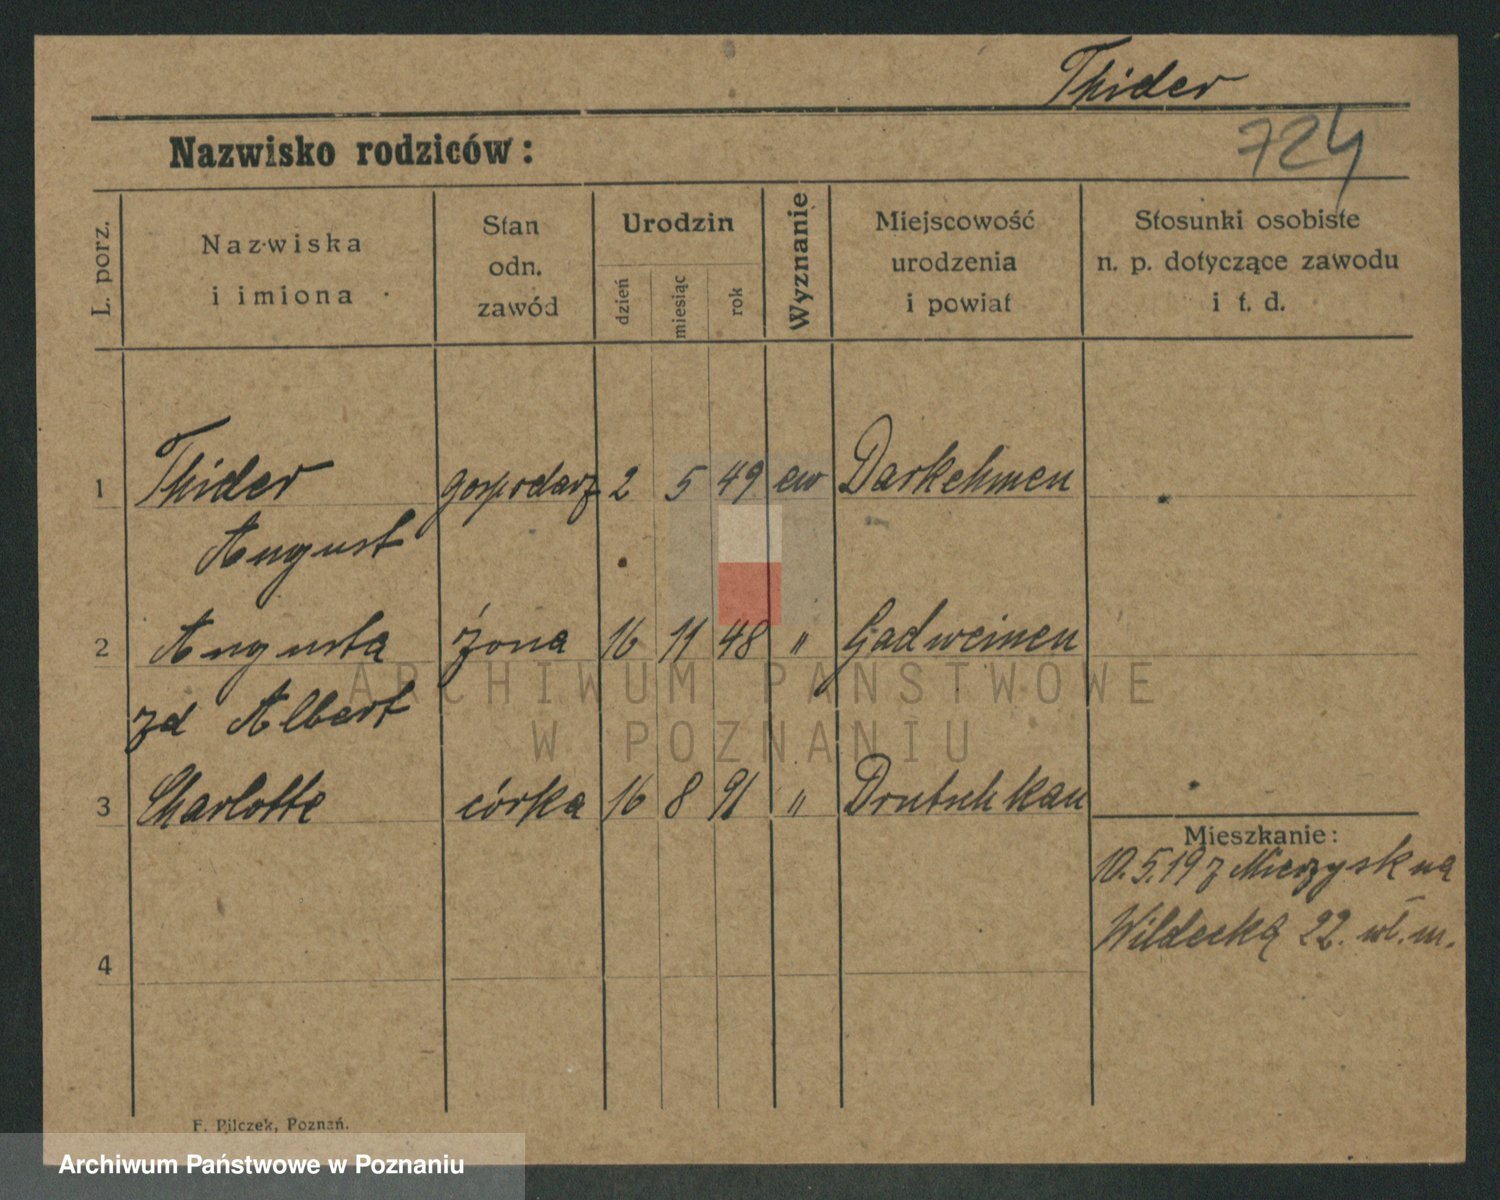 Thider
Nazwisko rodziców:
724
L. porz.
Nazwiska
i imiona
Stan
odn.
zawód
Urodzin
dzień
miesiąc
rok
Wyznanie
Miejscowość
urodzenia
i powiat
Stosunki osobiste
n. p. dotyczące zawodu
i t. d.
1 Thider gospodarz 2 5 49 ew Darkehmen
August
2 Augusta żona 16 11 48 " Gadweinen
zd Albert
3 Charlotte córka 16 8 91 " Drutschkau
Mieszkanie:
10.5.19 z Mierzysk na
Wildecką 22. wł. m.
4
F. Pilczek, Poznań.
ARCHIWUM PAŃSTWOWE
W POZNANIU
Archiwum Państwowe w Poznaniu